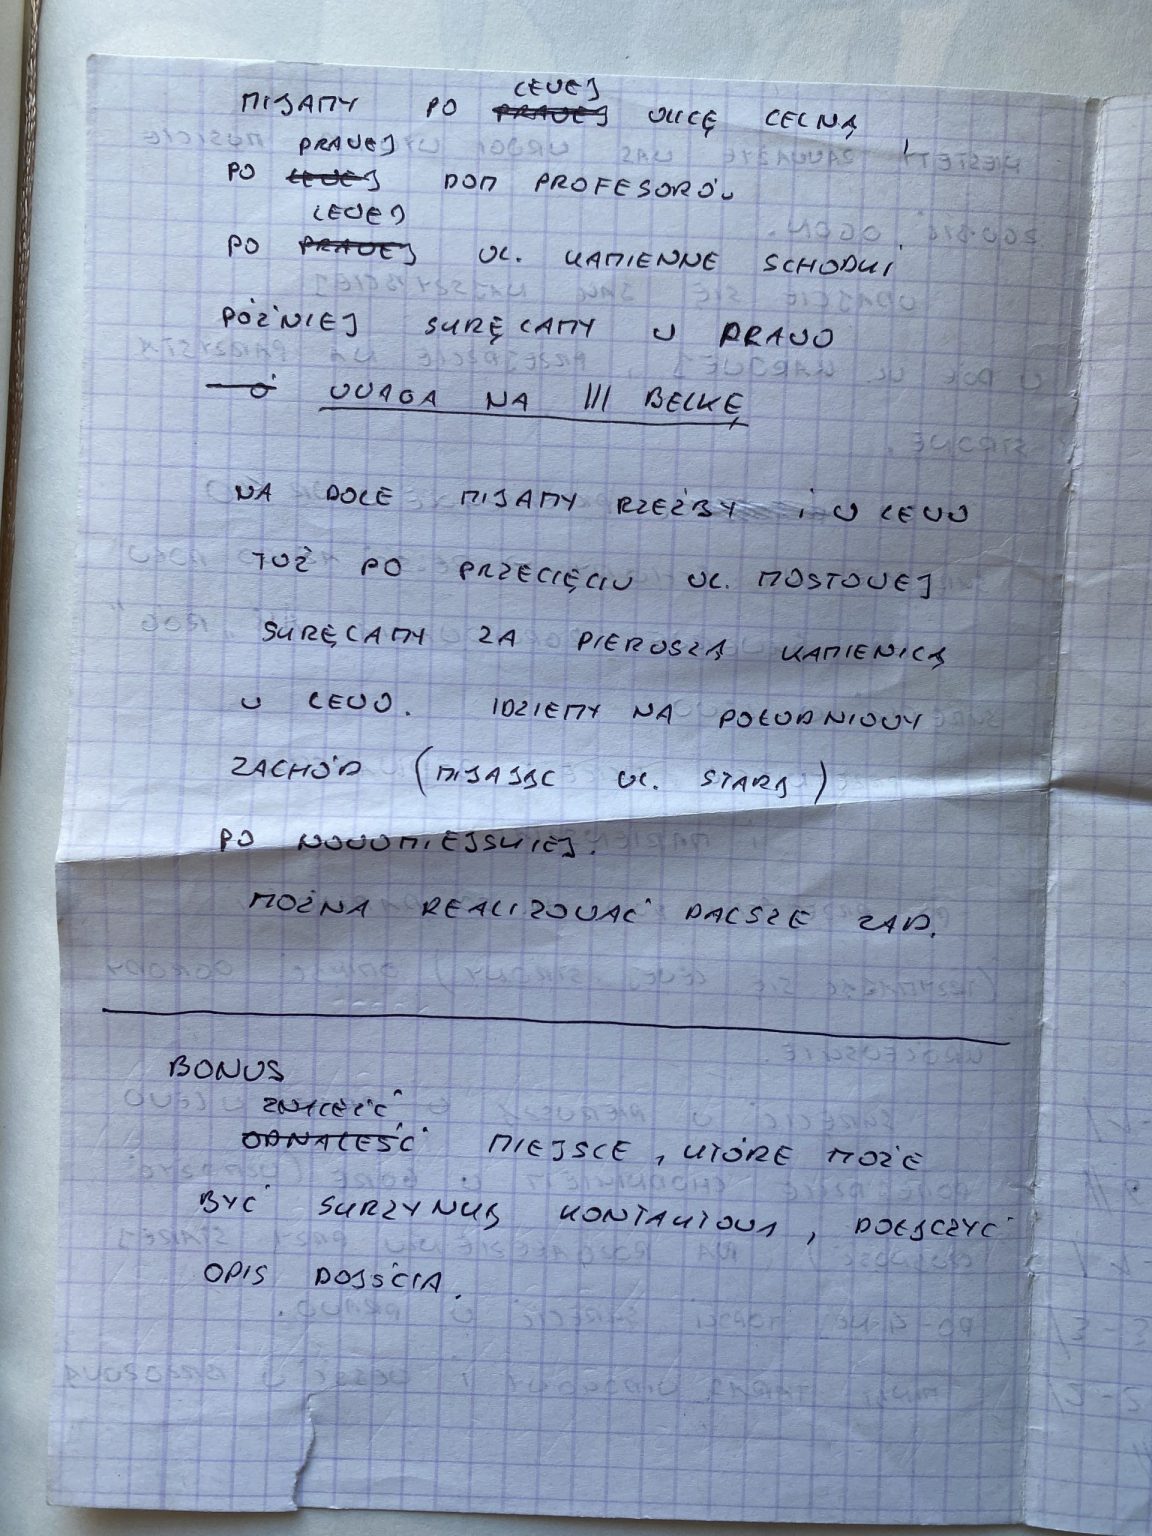 LEWEJ
MIJAMY PO PRAWEJ ULICĘ CELNĄ,
PRAWEJ
PO LEWEJ DOM PROFESORÓW
LEWEJ
PO PRAWEJ UL. KAMIENNE SCHODKI
PÓŹNIEJ SKRĘCAMY W PRAWO
UWAGA NA III BELKĘ
NA DOLE MIJAMY RZEŹBY i W LEWO
TUŻ PO PRZECIĘCIU UL. MOSTOWEJ
SKRĘCAMY ZA PIERWSZĄ KAMIENICĄ
W LEWO. IDZIEMY NA POŁUDNIOWY
ZACHÓD (MIJAJĄC UL. STARĄ)
PO NOWOMIEJSKIEJ.
MOŻNA REALIZOWAĆ DALSZE ZAD.
BONUS
ZNALEŹĆ
ODNALEŚĆ MIEJSCE, KTÓRE MOŻE
BYĆ SKRZYNKĄ KONTAKTOWĄ, DOŁĄCZYĆ
OPIS DOJŚCIA.